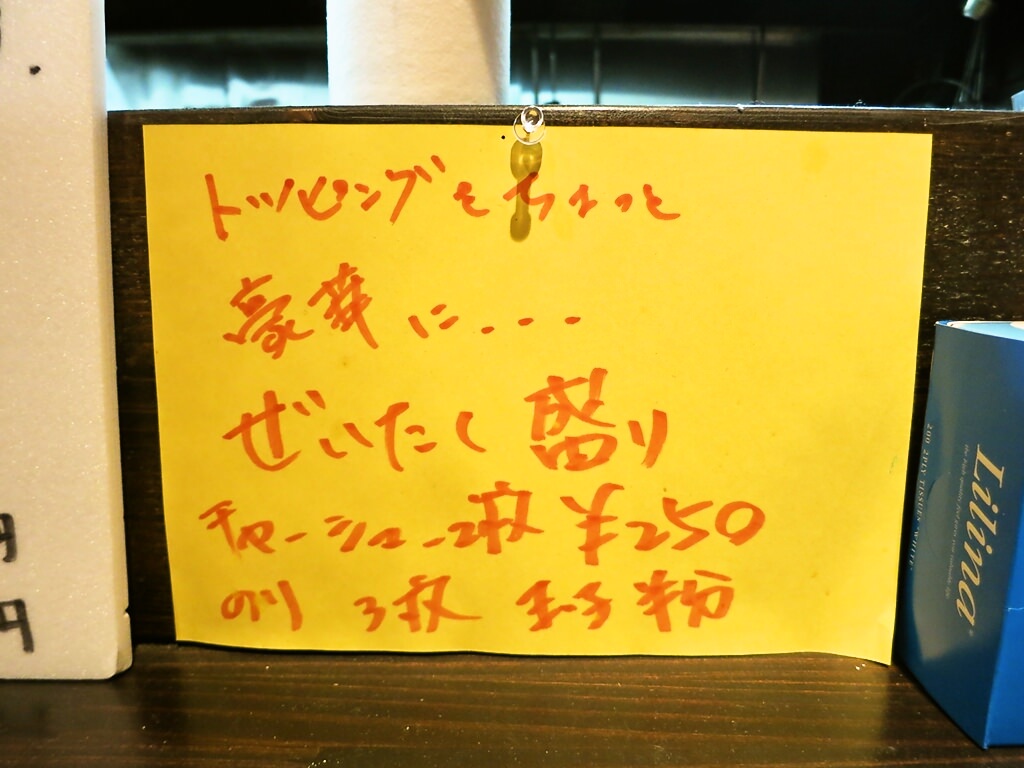 トッピングをちょっと
豪華に...
ぜいたく盛り
チャーシュー2枚 ¥250
のり 3枚 玉子半分
円
円
Lilina
200 2PLY TISSUE WHITE